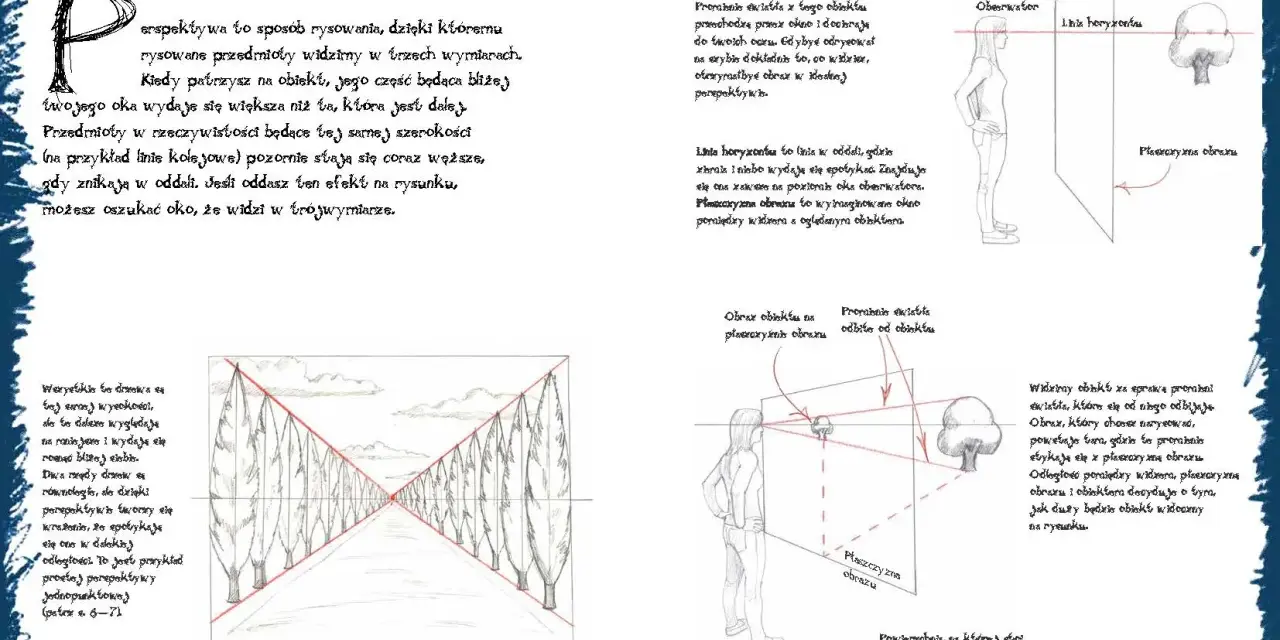 Perspektywa to sposób rysowania, dzięki któremu
rysowane przedmioty widzimy w trzech wymiarach.
Kiedy patrzysz na obiekt, jego część będąca bliżej
twojego oka wydaje się większa niż ta, która jest dalej.
Przedmioty w rzeczywistości będące tej samej szerokości
(na przykład linie kolejowe) pozornie stają się coraz węższe,
gdy znikają w oddali. Jeśli oddasz ten efekt na rysunku,
możesz oszukać oko, że widzi w trójwymiarze.
Wszystkie te drzewa są
tej samej wysokości,
ale te dalsze wyglądają
na mniejsze i wydają się
rosnąć bliżej siebie.
Dwa rzędy drzew są
równoległe, ale dzięki
perspektywie tworzy się
wrażenie, że spotykają
się one w dalekiej
odległości. To jest przykład
prostej perspektywy
jednopunktowej
(patrz s. 6–7).
Promienie światła z tego obiektu
przechodzą przez okno i docierają
do twoich oczu. Gdybyś odrysował
na szybie dokładnie to, co widzisz,
otrzymałbyś obraz w idealnej
perspektywie.
Obserwator
Linia horyzontu
Linia horyzontu to linia w oddali, gdzie
ziemia i niebo wydają się spotykać. Znajduje
się ona zawsze na poziomie oka obserwatora.
Płaszczyzna obrazu to wyimaginowane okno
pomiędzy widzem a oglądanym obiektem.
Płaszczyzna obrazu
Obraz obiektu na
płaszczyźnie obrazu
Promienie światła
odbite od obiektu
Płaszczyzna
obrazu
Widzimy obiekt za sprawą promieni
światła, które się od niego odbijają.
Obraz, który chcesz narysować,
powstaje tam, gdzie te promienie
stykają się z płaszczyzną obrazu.
Odległość pomiędzy widzem, płaszczyzną
obrazu i obiektem decyduje o tym,
jak duży będzie obiekt widoczny
na rysunku.